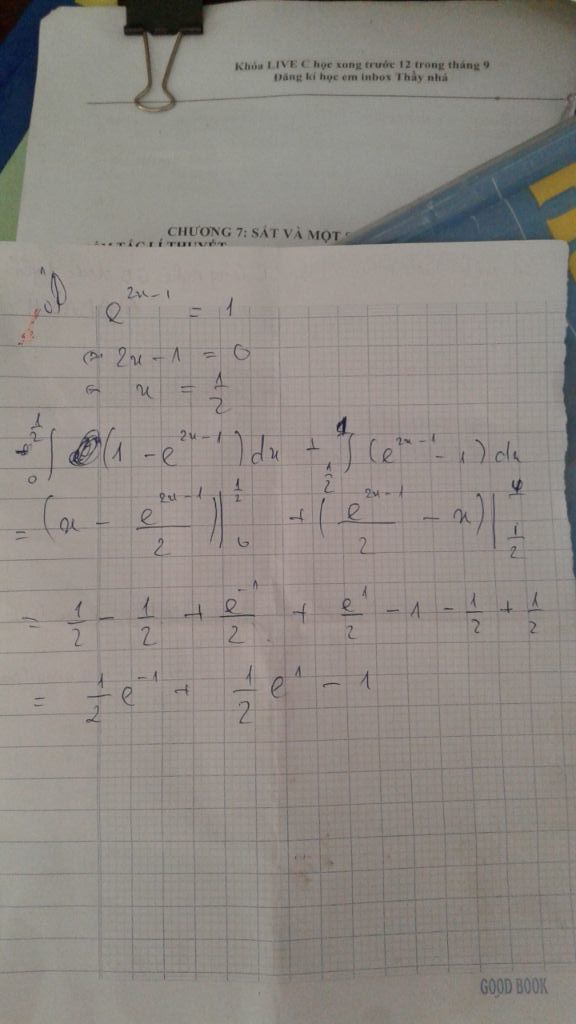 Khóa LIVE C học xong trước 12 trong tháng 9
Đăng kí học em inbox Thầy nhá
CHƯƠNG 7: SẮT VÀ MỘT
e^{2x-1} = 1
⇔ 2x - 1 = 0
⇔ x = 1/2
∫_0^{1/2} (1 - e^{2x-1}) dx + ∫_{1/2}^1 (e^{2x-1} - 1) dx
= (x - e^{2x-1}/2) |_0^{1/2} + (e^{2x-1}/2 - x) |_{1/2}^1
= 1/2 - 1/2 + e^{-1}/2 + e^1/2 - 1 - 1/2 + 1/2
= 1/2 e^{-1} + 1/2 e^1 - 1
GOOD BOOK